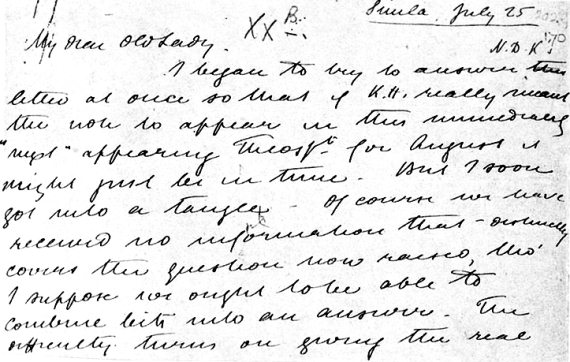 XX B.
Simla. July 25
My dear Old Lady.
N.D.K.
I began to try to answer this
letter at once so that if K.H. really meant
the note to appear in this immediately
"next" appearing Theosst. for August it
might just be in time. But I soon
got into a tangle - Of course we have
received no information that distinctly
covers the question now raised, tho'
I suppose we ought to be able to
combine bits into an answer. The
difficulty turns on giving the real